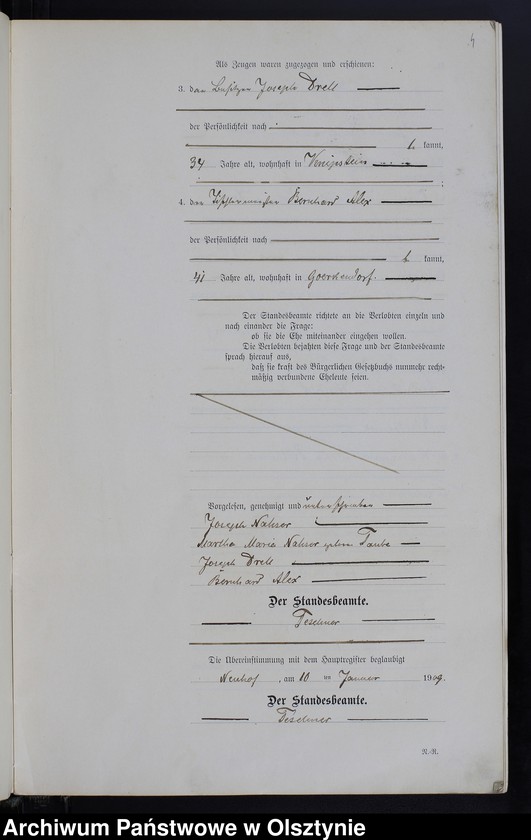 4
Als Zeugen waren zugezogen und erschienen:
3. der Besitzer Joseph Drell
der Persönlichkeit nach
kannt,
34 Jahre alt, wohnhaft in
;
4. der Tischlermeister Bernhard Alex
der Persönlichkeit nach
kannt,
41 Jahre alt, wohnhaft in
Der Standesbeamte richtete an die Verlobten einzeln und
nach einander die Frage:
ob sie die Ehe miteinander eingehen wollen.
Die Verlobten bejahten diese Frage und der Standesbeamte
sprach hierauf aus,
daß sie kraft des Bürgerlichen Gesetzbuchs nunmehr recht-
mäßig verbundene Eheleute seien.
Vorgelesen, genehmigt und unterschrieben
Joseph
Martha Maria geborene Taube
Joseph Drell
Bernhard Alex
Der Standesbeamte.
Teschner
Die Übereinstimmung mit dem Hauptregister beglaubigt
Neuhof, am 10 ten Januar 1909.
Der Standesbeamte.
Teschner
Archiwum Państwowe w Olsztynie